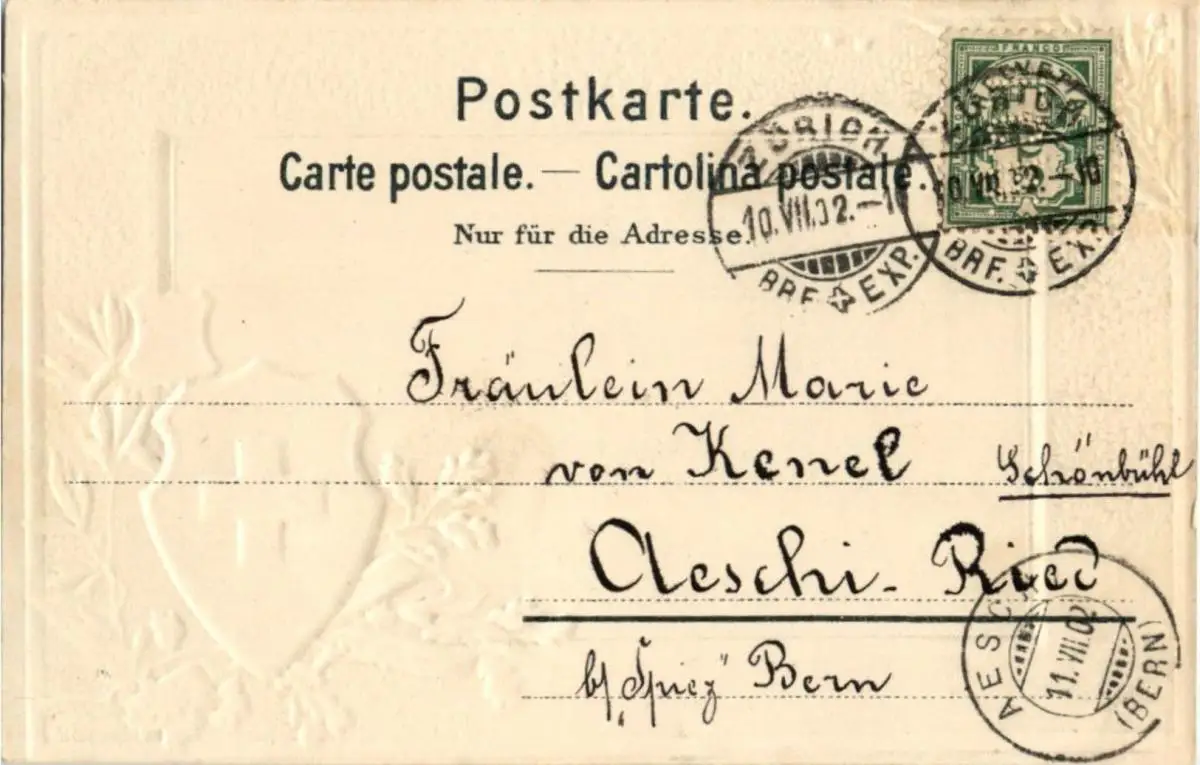 FRANCO
HELVETIA
Postkarte.
Carte postale. — Cartolina postale.
Nur für die Adresse.
ZÜRICH
10.VII.02.–10
BRF. EXP.
ZÜRICH
10.VII.02.–10
BRF. EXP.
Fräulein Marie
von Kenel Schönbühl
Aeschi-Ried
b/ „Spiez” Bern
AESCHI
11.VII.02
(BERN)